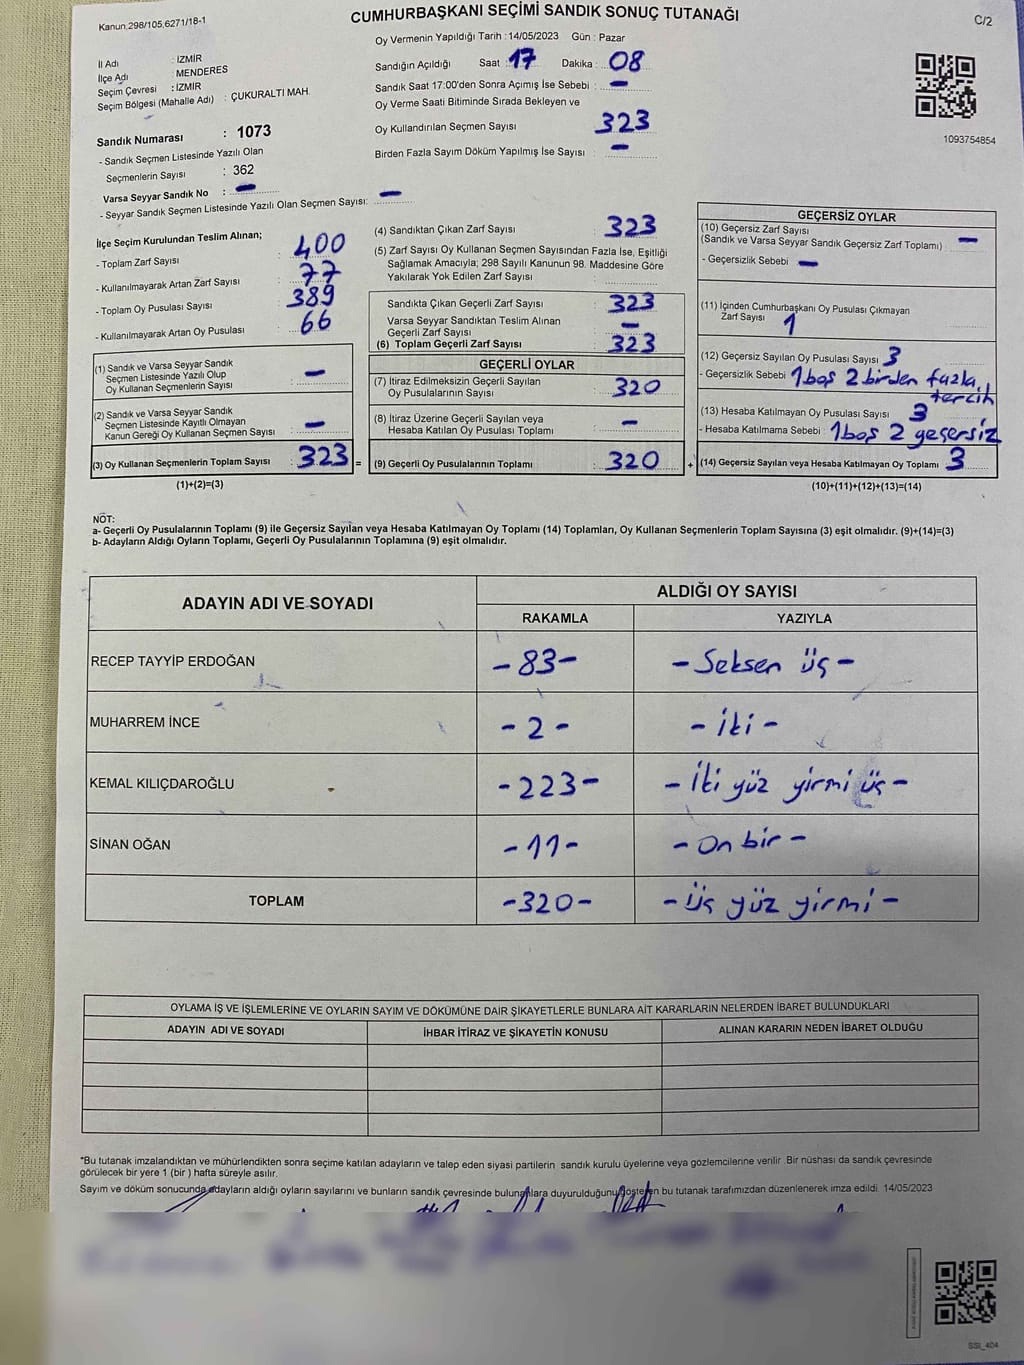 Kanun 298/105,6271/18-1
CUMHURBAŞKANI SEÇİMİ SANDIK SONUÇ TUTANAĞI
C/2
Oy Vermenin Yapıldığı Tarih : 14/05/2023 Gün : Pazar
İl Adı : İZMİR
İlçe Adı : MENDERES
Seçim Çevresi : İZMİR
Seçim Bölgesi (Mahalle Adı) : ÇUKURALTI MAH.
Sandık Numarası : 1073
- Sandık Seçmen Listesinde Yazılı Olan
Seçmenlerin Sayısı : 362
Varsa Seyyar Sandık No : -
- Seyyar Sandık Seçmen Listesinde Yazılı Olan Seçmen Sayısı: -
Sandığın Açıldığı Saat : 17 Dakika : 08
Sandık Saat 17:00'den Sonra Açımış İse Sebebi : -
Oy Verme Saati Bitiminde Sırada Bekleyen ve
Oy Kullandırılan Seçmen Sayısı 323
Birden Fazla Sayım Döküm Yapılmış İse Sayısı : -
1093754854
İlçe Seçim Kurulundan Teslim Alınan;
- Toplam Zarf Sayısı : 400
- Kullanılmayarak Artan Zarf Sayısı : 77
- Toplam Oy Pusulası Sayısı : 389
- Kullanılmayarak Artan Oy Pusulası : 66
(1) Sandık ve Varsa Seyyar Sandık
Seçmen Listesinde Yazılı Olup
Oy Kullanan Seçmenlerin Sayısı : -
(2) Sandık ve Varsa Seyyar Sandık
Seçmen Listesinde Kayıtlı Olmayan
Kanun Gereği Oy Kullanan Seçmen Sayısı : -
(3) Oy Kullanan Seçmenlerin Toplam Sayısı : 323 =
(1)+(2)=(3)
(4) Sandıktan Çıkan Zarf Sayısı : 323
(5) Zarf Sayısı Oy Kullanan Seçmen Sayısından Fazla İse, Eşitliği
Sağlamak Amacıyla; 298 Sayılı Kanunun 98. Maddesine Göre
Yakılarak Yok Edilen Zarf Sayısı :
Sandıkta Çıkan Geçerli Zarf Sayısı : 323
Varsa Seyyar Sandıktan Teslim Alınan
Geçerli Zarf Sayısı : -
(6) Toplam Geçerli Zarf Sayısı : 323
GEÇERLİ OYLAR
(7) İtiraz Edilmeksizin Geçerli Sayılan
Oy Pusulalarının Sayısı : 320
(8) İtiraz Üzerine Geçerli Sayılan veya
Hesaba Katılan Oy Pusulası Toplamı : -
(9) Geçerli Oy Pusulalarının Toplamı : 320 +
GEÇERSİZ OYLAR
(10) Geçersiz Zarf Sayısı
(Sandık ve Varsa Seyyar Sandık Geçersiz Zarf Toplamı) : -
- Geçersizlik Sebebi : -
(11) İçinden Cumhurbaşkanı Oy Pusulası Çıkmayan
Zarf Sayısı : 1
(12) Geçersiz Sayılan Oy Pusulası Sayısı : 3
- Geçersizlik Sebebi : 1 boş 2 birden fazla
tercih
(13) Hesaba Katılmayan Oy Pusulası Sayısı : 3
- Hesaba Katılmama Sebebi : 1 boş 2 geçersiz
(14) Geçersiz Sayılan veya Hesaba Katılmayan Oy Toplamı : 3
(10)+(11)+(12)+(13)=(14)
NOT:
a- Geçerli Oy Pusulalarının Toplamı (9) ile Geçersiz Sayılan veya Hesaba Katılmayan Oy Toplamı (14) Toplamları, Oy Kullanan Seçmenlerin Toplam Sayısına (3) eşit olmalıdır. (9)+(14)=(3)
b- Adayların Aldığı Oyların Toplamı, Geçerli Oy Pusulalarının Toplamına (9) eşit olmalıdır.
ADAYIN ADI VE SOYADI
ALDIĞI OY SAYISI
RAKAMLA YAZIYLA
RECEP TAYYİP ERDOĞAN -83- -Seksen üç-
MUHARREM İNCE -2- -iki-
KEMAL KILIÇDAROĞLU -223- -İki yüz yirmi üç-
SİNAN OĞAN -11- -On bir-
TOPLAM -320- -üç yüz yirmi-
OYLAMA İŞ VE İŞLEMLERİNE VE OYLARIN SAYIM VE DÖKÜMÜNE DAİR ŞİKAYETLERLE BUNLARA AİT KARARLARIN NELERDEN İBARET BULUNDUKLARI
ADAYIN ADI VE SOYADI İHBAR İTİRAZ VE ŞİKAYETİN KONUSU ALINAN KARARIN NEDEN İBARET OLDUĞU
*Bu tutanak imzalandıktan ve mühürlendikten sonra seçime katılan adayların ve talep eden siyasi partilerin sandık kurulu üyelerine veya gözlemcilerine verilir .Bir nüshası da sandık çevresinde
görülecek bir yere 1 (bir ) hafta süreyle asılır.
Sayım ve döküm sonucunda adayların aldığı oyların sayılarını ve bunların sandık çevresinde bulunanlara duyurulduğunu gösteren bu tutanak tarafımızdan düzenlenerek imza edildi. 14/05/2023
SSI_404